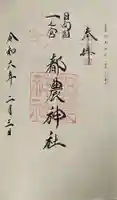 奉拝
日向国
一之宮
都農神社
令和六年二月三日